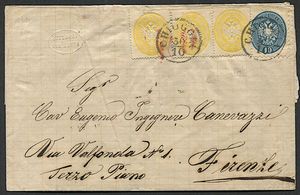 CHIOGGIA
30
10
Sigr
Cav Eugenio Ingegnere Canevazzi
Via Valfonda N° 1.
Terzo Piano
Firenze